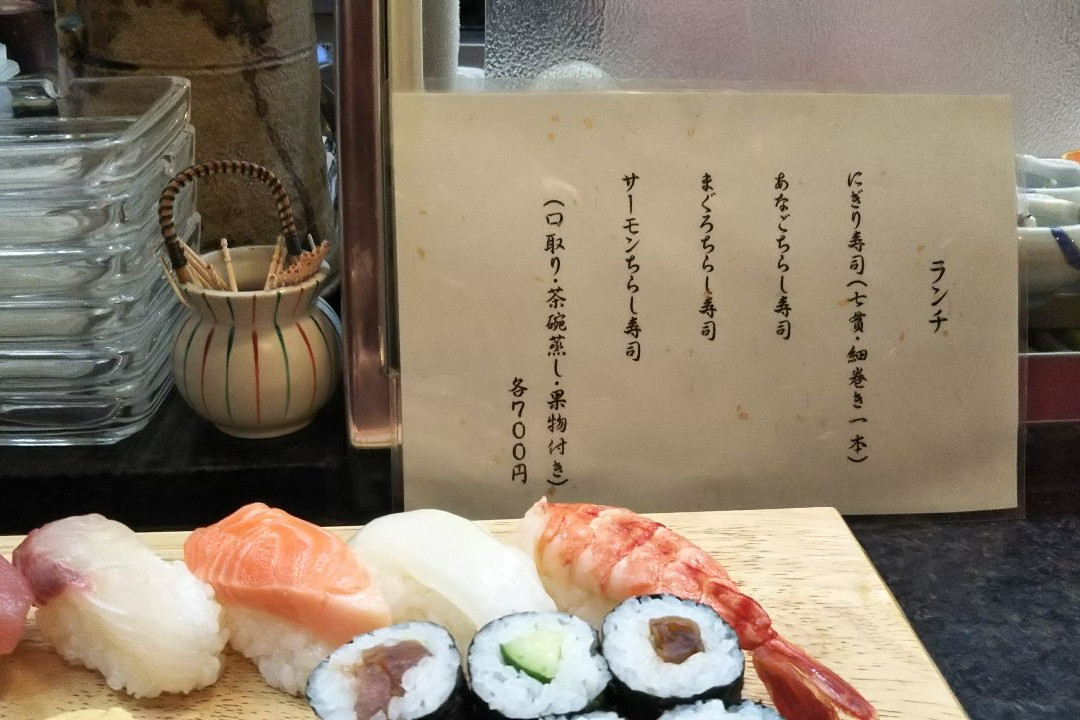 ランチ
にぎり寿司(七貫・細巻き一本)
あなごちらし寿司
まぐろちらし寿司
サーモンちらし寿司
(口取り・茶碗蒸し・果物付き)
各700円